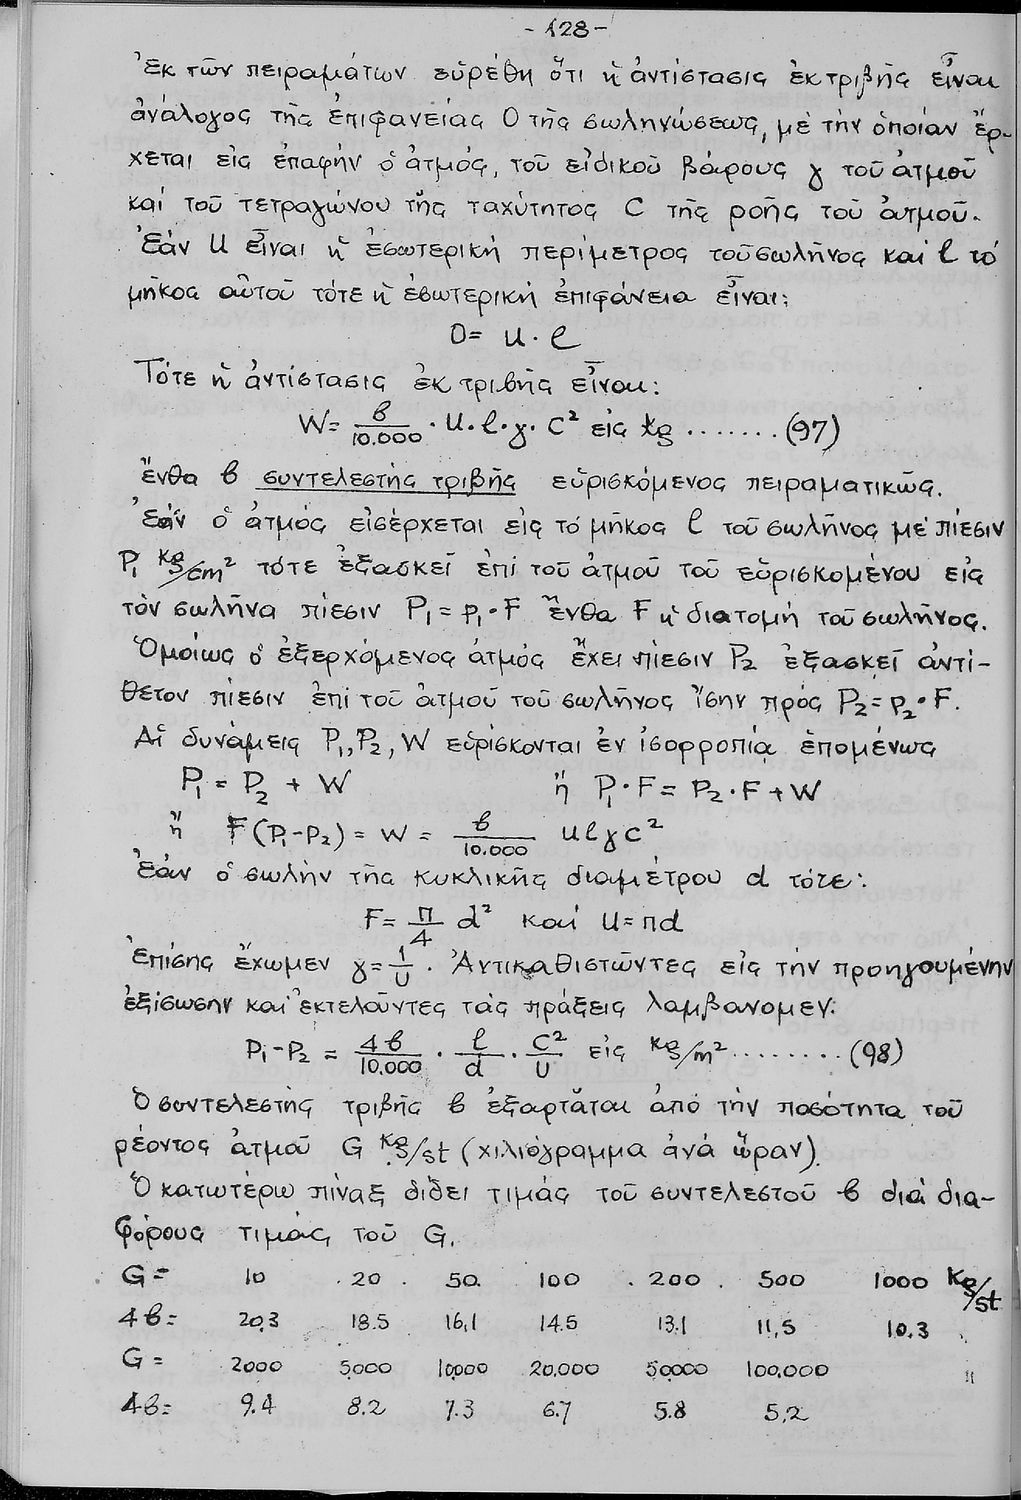 - 128 -
Ἐκ τῶν πειραμάτων εὑρέθη ὅτι ἡ ἀντίστασις ἐκ τριβῆς εἶναι
ἀνάλογος τῆς ἐπιφανείας O τῆς σωληνώσεως, μέ τήν ὁποίαν ἔρ-
χεται εἰς ἐπαφήν ὁ ἀτμός, τοῦ εἰδικοῦ βάρους γ τοῦ ἀτμοῦ
καί τοῦ τετραγώνου τῆς ταχύτητος C τῆς ροῆς τοῦ ἀτμοῦ.
Ἐάν U εἶναι ἡ ἐσωτερική περίμετρος τοῦ σωλῆνος καί l τό
μῆκος αὐτοῦ τότε ἡ ἐσωτερική ἐπιφάνεια εἶναι:
O = U . l
Τότε ἡ ἀντίστασις ἐκ τριβῆς εἶναι:
W = β/10.000 . U . l . γ . C² εἰς kg ....... (97)
ἔνθα β συντελεστής τριβῆς εὑρισκόμενος πειραματικῶς.
Ἐάν ὁ ἀτμός εἰσέρχεται εἰς τό μῆκος l τοῦ σωλῆνος μέ πίεσιν
P₁ kg/cm² τότε ἐξασκεῖ ἐπί τοῦ ἀτμοῦ τοῦ εὑρισκομένου εἰς
τόν σωλῆνα πίεσιν P₁ = p₁ . F ἔνθα F ἡ διατομή τοῦ σωλῆνος.
Ὁμοίως ὁ ἐξερχόμενος ἀτμός ἔχει πίεσιν P₂ ἐξασκεῖ ἀντί-
θετον πίεσιν ἐπί τοῦ ἀτμοῦ τοῦ σωλῆνος ἴσην πρός P₂ = p₂ . F.
Αἱ δυνάμεις P₁, P₂, W εὑρίσκονται ἐν ἰσορροπίᾳ ἑπομένως
P₁ = P₂ + W ἤ P₁ . F = P₂ . F + W
ἤ F (P₁ - P₂) = W = β/10.000 U l γ C²
Ἐάν ὁ σωλήν τῆς κυκλικῆς διαμέτρου d τότε:
F = π/4 d² καί U = πd
Ἐπίσης ἔχωμεν γ = 1/υ . Ἀντικαθιστῶντες εἰς τήν προηγουμένην
ἐξίσωσην καί ἐκτελοῦντες τάς πράξεις λαμβανομεν:
P₁ - P₂ = 4β/10.000 . l/d . C²/υ εἰς kg/m² ........ (98)
Ὁ συντελεστής τριβῆς β ἐξαρτᾶται ἀπό τήν ποσότητα τοῦ
ρέοντος ἀτμοῦ G kg/st (χιλιόγραμμα ἀνά ὥραν).
Ὁ κατωτέρω πίναξ δίδει τιμάς τοῦ συντελεστοῦ β διά δια-
φόρους τιμάς τοῦ G.
G = 10 20 50 100 200 500 1000 kg/st
4β = 20,3 18.5 16,1 14.5 13.1 11,5 10.3
G = 2000 5000 10000 20.000 50000 100.000 "
4β = 9.4 8.2 7.3 6.7 5.8 5,2